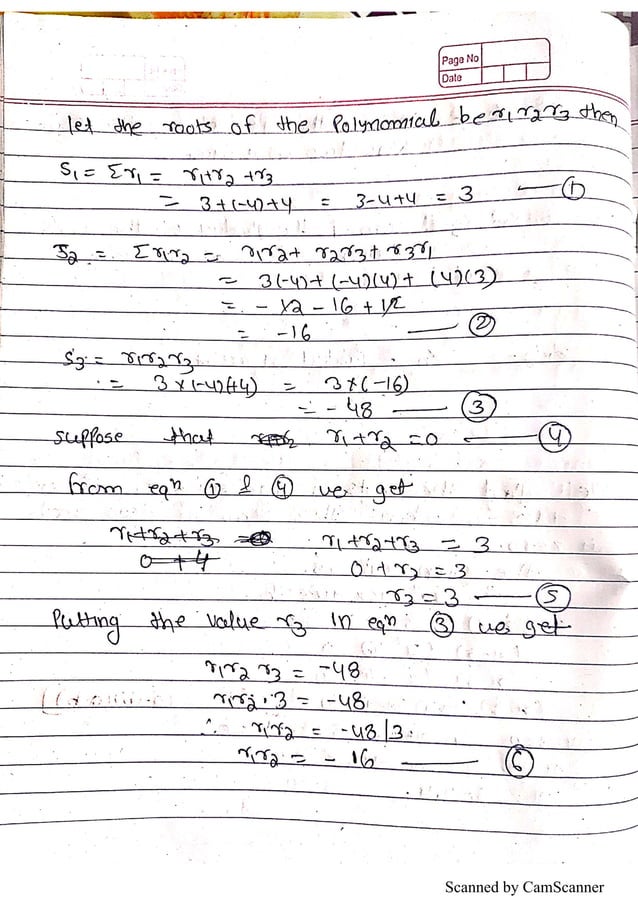 Page No
Date
let the roots of the Polynomial be r1 r2 r3 then
S1 = Σr1 = r1+r2+r3
= 3+(-4)+4 = 3-4+4 = 3 — ①
S2 = Σr1r2 = r1r2+ r2r3+ r3r1
= 3(-4)+(-4)(4)+ (4)(3)
= -12 -16 +12
= -16 — ②
S3 = r1r2r3
= 3×(-4)(+4) = 3×(-16)
= -48 — ③
suppose that r1+r2 =0 — ④
from eqn ① & ④ we get
r1+r2+r3 = 0 r1+r2+r3 = 3
0+4 0+r2 = 3
r3 = 3 — ⑤
Putting the value r3 in eqn ③ we get
r1r2 r3 = -48
r1r2·3 = -48
∴ r1r2 = -48/3
r1r2 = -16 — ⑥
Scanned by CamScanner